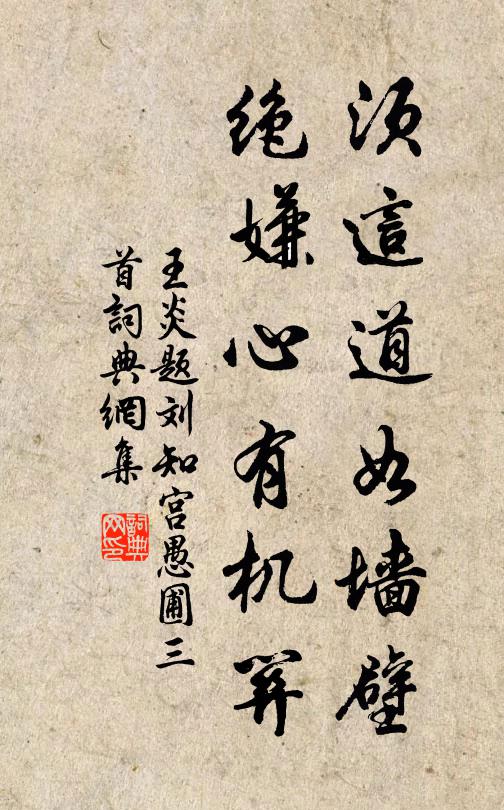 须這道如墙壁
绝嫌心有机穽
王炎题刘知宫愚圃三
首詞典網集
詞典
网印